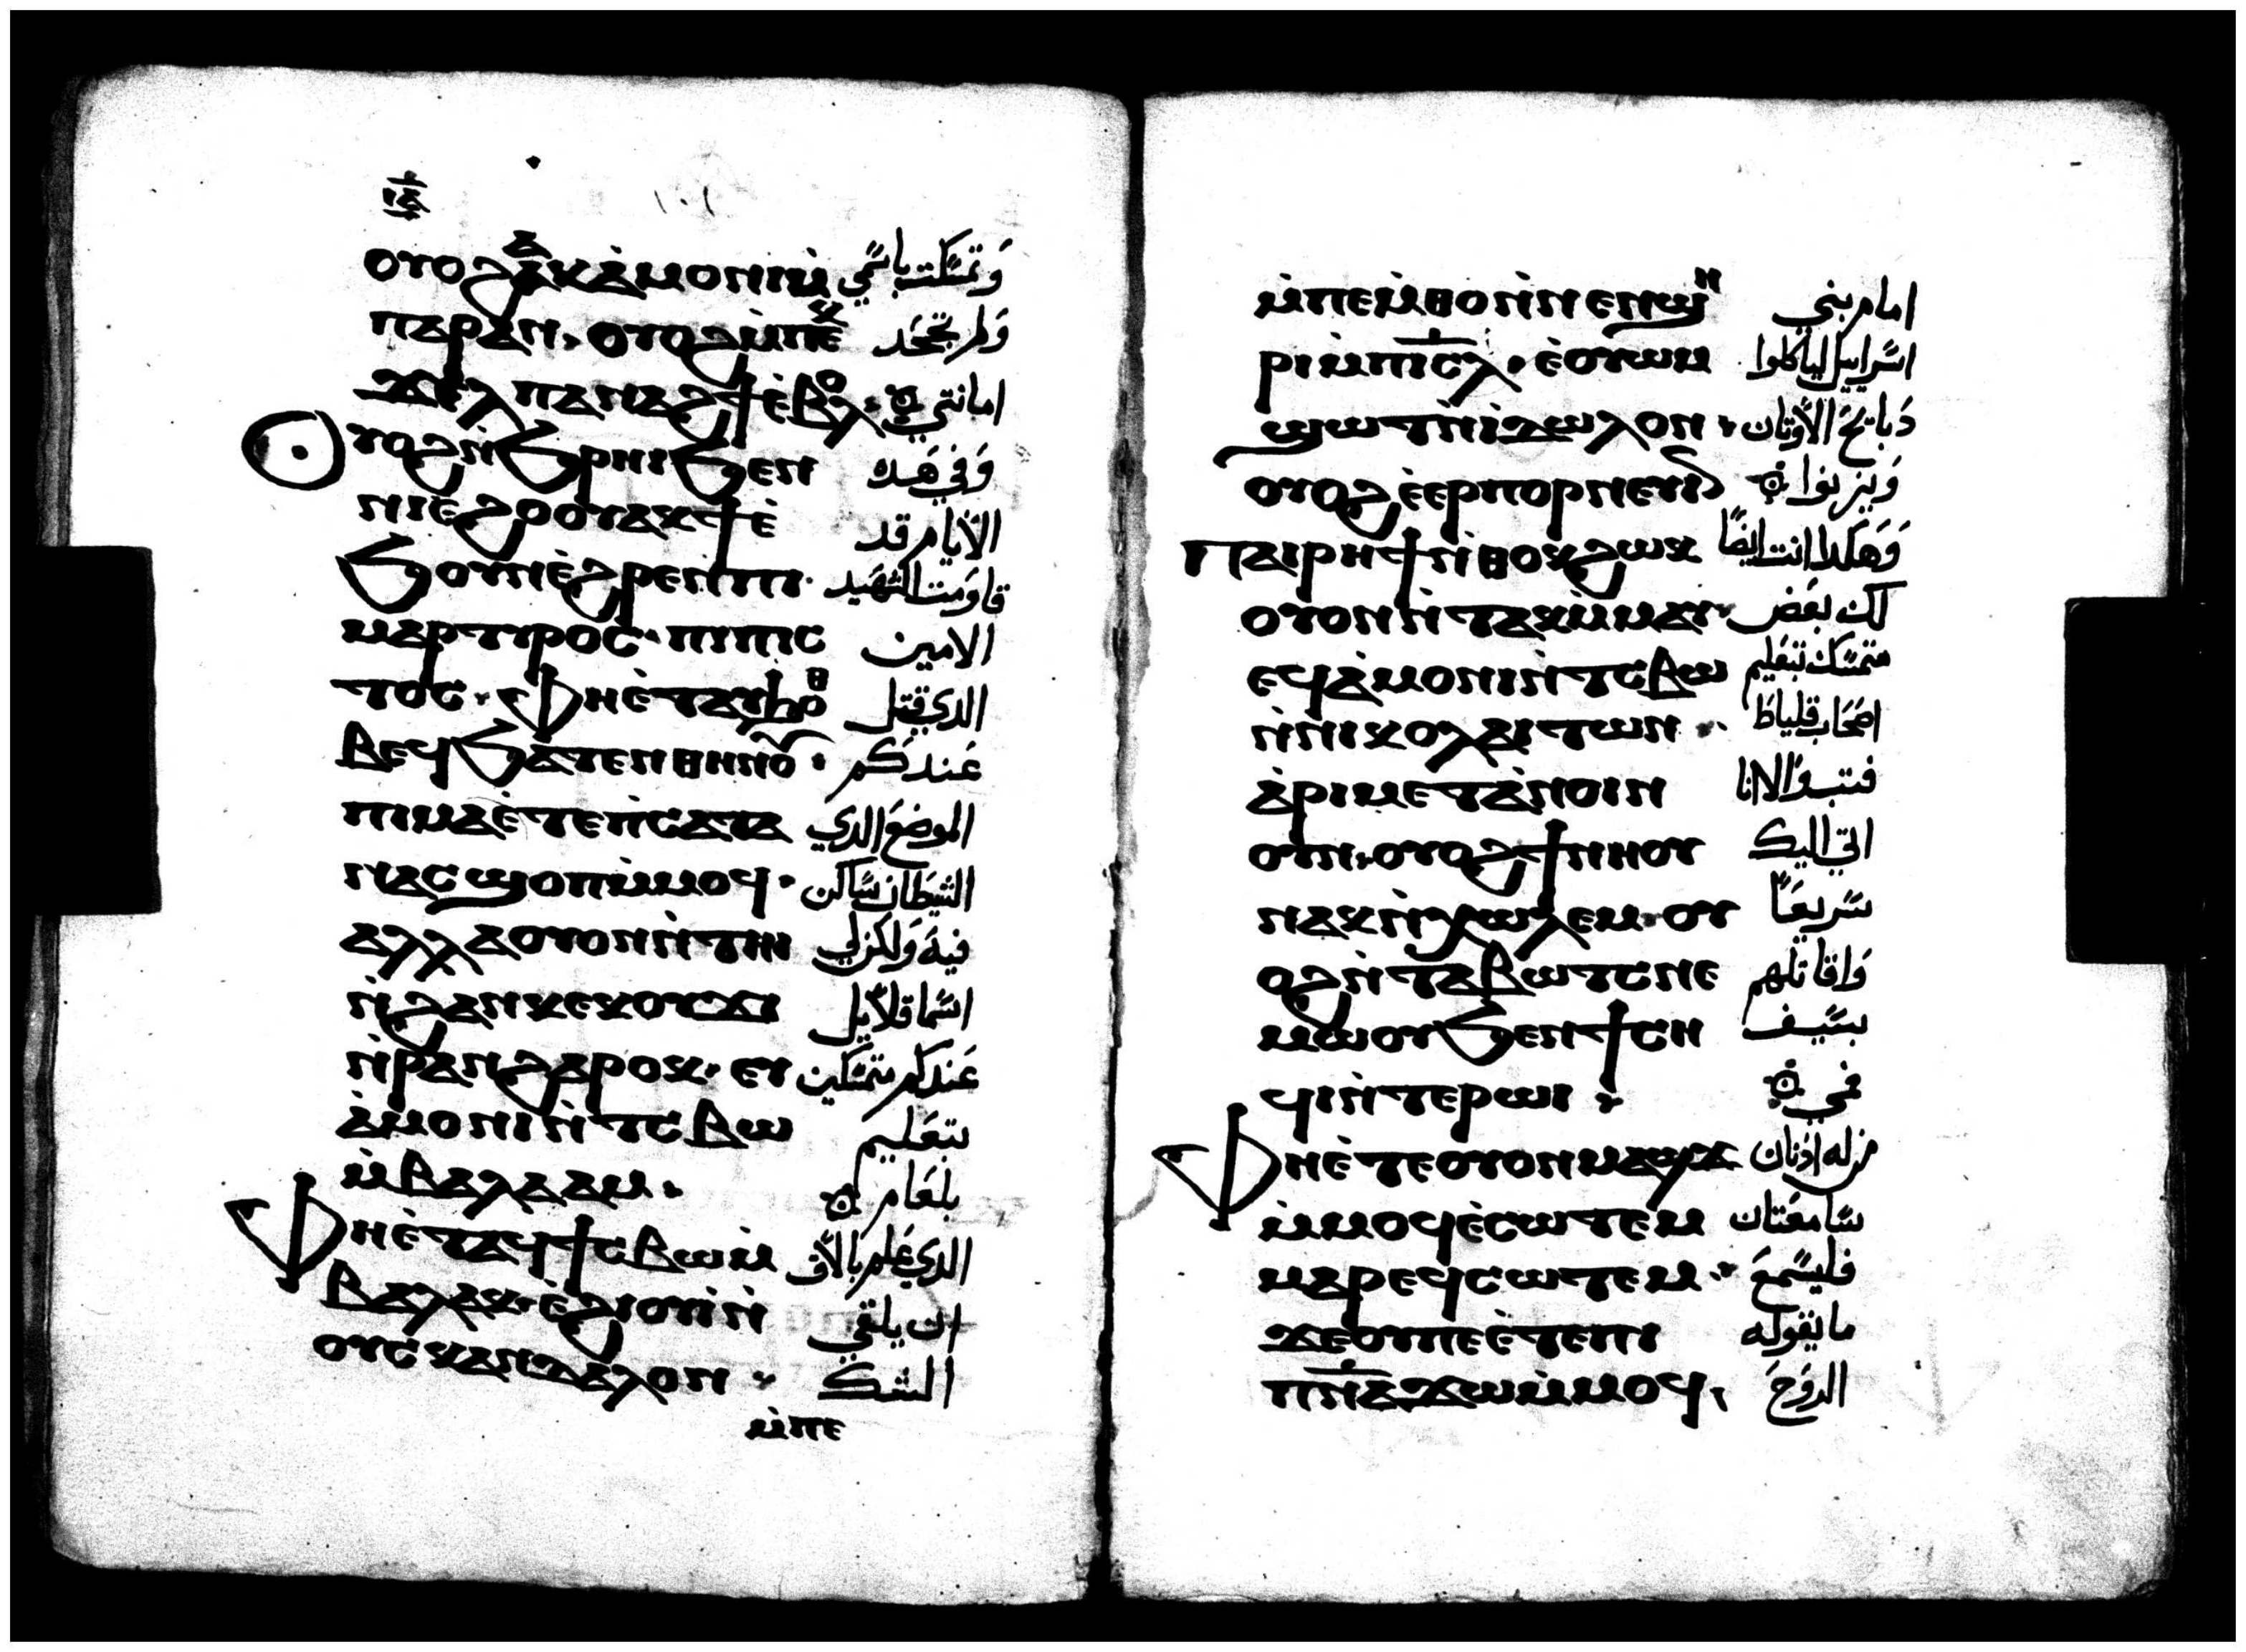 ⲓⲇ
ⲟⲩⲟϩⲁⲕⲁ̀ⲙⲟⲛⲓⲙ̀ وَتمسّكت باسّمي
ⲡⲁⲣⲁⲛ· ⲟⲩⲟϩⲙ̀ⲡⲉⲕ وَلم تجحَد
ϫⲉⲗⲡⲁⲛⲁϩϯⲉ̀ⲃⲟⲗ· امانتي
ⲟⲩⲟϩⲛ̀ϧⲣⲏⲓϧⲉⲛ وَفي هَده
ⲛⲓⲉϩⲟⲟⲩⲁⲕϯⲉ̀ الأيام قد
ϧⲟⲩⲛⲉ̀ϩⲣⲉⲛⲡⲓ· قاوَمت الشهَيد
ⲙⲁⲣⲧⲩⲣⲟⲥ· ⲡⲓⲡⲓⲥ الامين
ⲧⲟⲥ· ⲫⲏⲉ̀ⲧⲁⲩϧⲟⲑ الدي قتل
ⲃⲉϥϧⲁⲧⲉⲛⲑⲏⲛⲟⲩ· عَندكم
ⲡⲓⲙⲁⲉ̀ⲧⲉⲡ̀ⲥⲁⲧⲁ الموضعَ الدي
ⲛⲁⲥϣⲟⲡⲙ̀ⲙⲟϥ· الشيَطان سّاكن
ⲁⲗⲗⲁⲟⲩⲟⲛⲛ̀ⲧⲏⲓ فيهَ وَلكن لي
ⲛ̀ϩⲁⲛⲕⲉⲕⲟⲩϫⲓ اسّما قلايل
ⲛ̀ⲣⲁⲛϩⲁⲣⲟⲕ· ⲉⲩ عَندكم متمسّكين
ⲁ̀ⲙⲟⲛⲓⲛ̀ⲧⲥⲃⲱ بتعَليم
ⲙ̀ⲃⲁⲗⲁⲁⲙ· بلعَام
ⲫⲏⲉ̀ⲧⲁϥϯⲥⲃⲱⲙ̀ الدي عَلم بالاق
ⲃⲁⲗⲁⲕ·ⲉ̀ϩⲓⲟⲩⲓⲛ̀ ان يلقي
ⲟⲩⲥⲕⲁⲛⲇⲁⲗⲟⲛ· الشك
ⲙ̀ⲡⲉ
ⲙ̀ⲡⲉⲙ̀ⲑⲟⲛ̀ⲛⲉⲛϣⲏ امام بني
ⲣⲓⲙ̀ⲡⲓⲥⲗ· ⲉ̀ⲟⲩⲱⲙ اسّراييل ليأكلوا
ϣⲱⲧⲛ̀ⲓⲇⲱⲗⲟⲛ· دَبايح الأوتان
ⲟⲩⲟϩⲉ̀ⲉⲣⲡⲟⲣⲛⲉⲩⲓⲛ وَيزنوا
ⲡⲁⲓⲣⲏϯⲛ̀ⲑⲟⲕϩⲱⲕ وَهَكدا انت ايضًا
ⲟⲩⲟⲛⲛ̀ⲧⲁⲕⲙ̀ⲙⲁⲩ· لك بعَض
ⲉϥⲁ̀ⲙⲟⲛⲓⲛ̀ⲧⲥⲃⲱ متمسّك بتعَليم
ⲛ̀ⲛⲓⲕⲟⲗⲁⲓⲧⲱⲛ· اصَحاب قلياطَ
ⲁ̀ⲣⲓⲙⲉⲧⲁ̀ⲛⲟⲓⲛ فتب والا انا
ⲟⲩⲛ·ⲟⲩⲟϩϯⲛⲏⲟⲩ اتي اليك
ⲛⲁⲕⲛ̀ⲭⲱⲗⲉⲙ· ⲟⲩ سّريعَاً
ⲟϩⲛ̀ⲧⲁⲃⲱⲧⲥⲛⲉ وَاقاتلهم
ⲙⲱⲟⲩϧⲉⲛϯⲥⲏ بسّيف
ϥⲓⲛ̀ⲧⲉⲣⲱⲓ· فمي
ⲫⲏⲉ̀ⲧⲉⲟⲩⲟⲛⲙⲁϣϫ من له ادنان
ⲙ̀ⲙⲟϥⲉ̀ⲥⲱⲧⲉⲙ سّامعَتان
ⲙⲁⲣⲉϥⲥⲱⲧⲉⲙ· فليسّمعَ
ϫⲉⲟⲩⲡⲉⲉ̀ⲧⲉⲡⲓ ما يقوله
ⲡⲛ̅ⲁϫⲱⲙ̀ⲙⲟϥ· الروَحَ